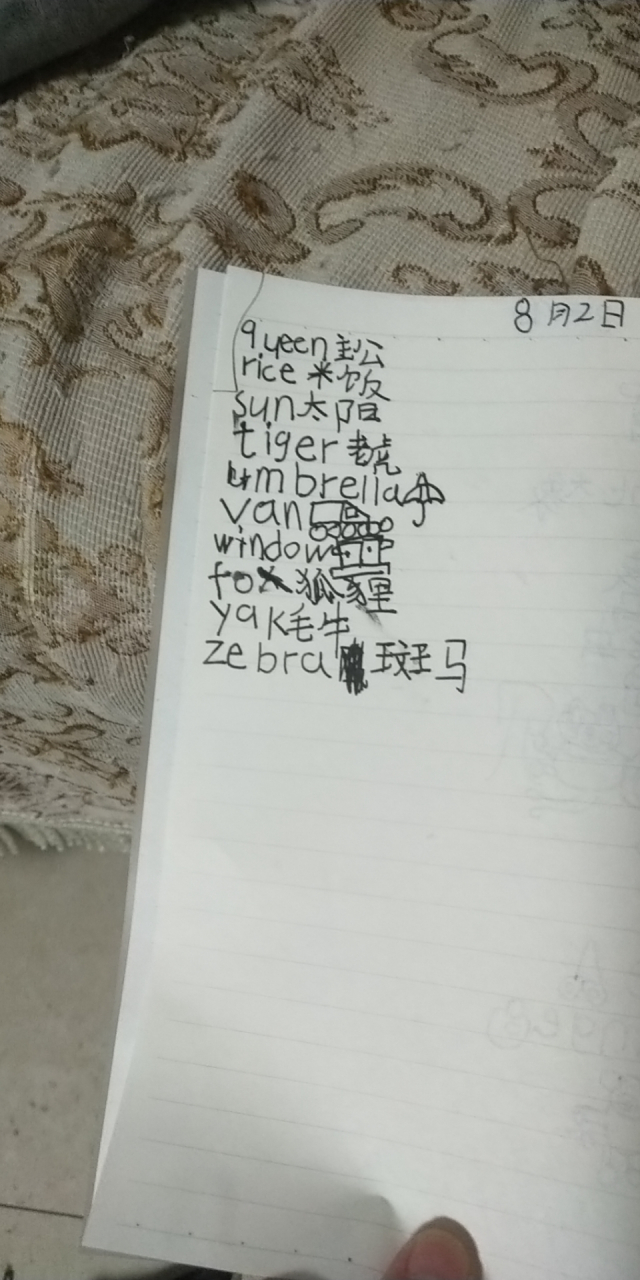 8月2日
queen
rice 米饭
sun 太阳
tiger 老虎
umbrella
van
window
fox 狐狸
yak 毛牛
zebra 斑马